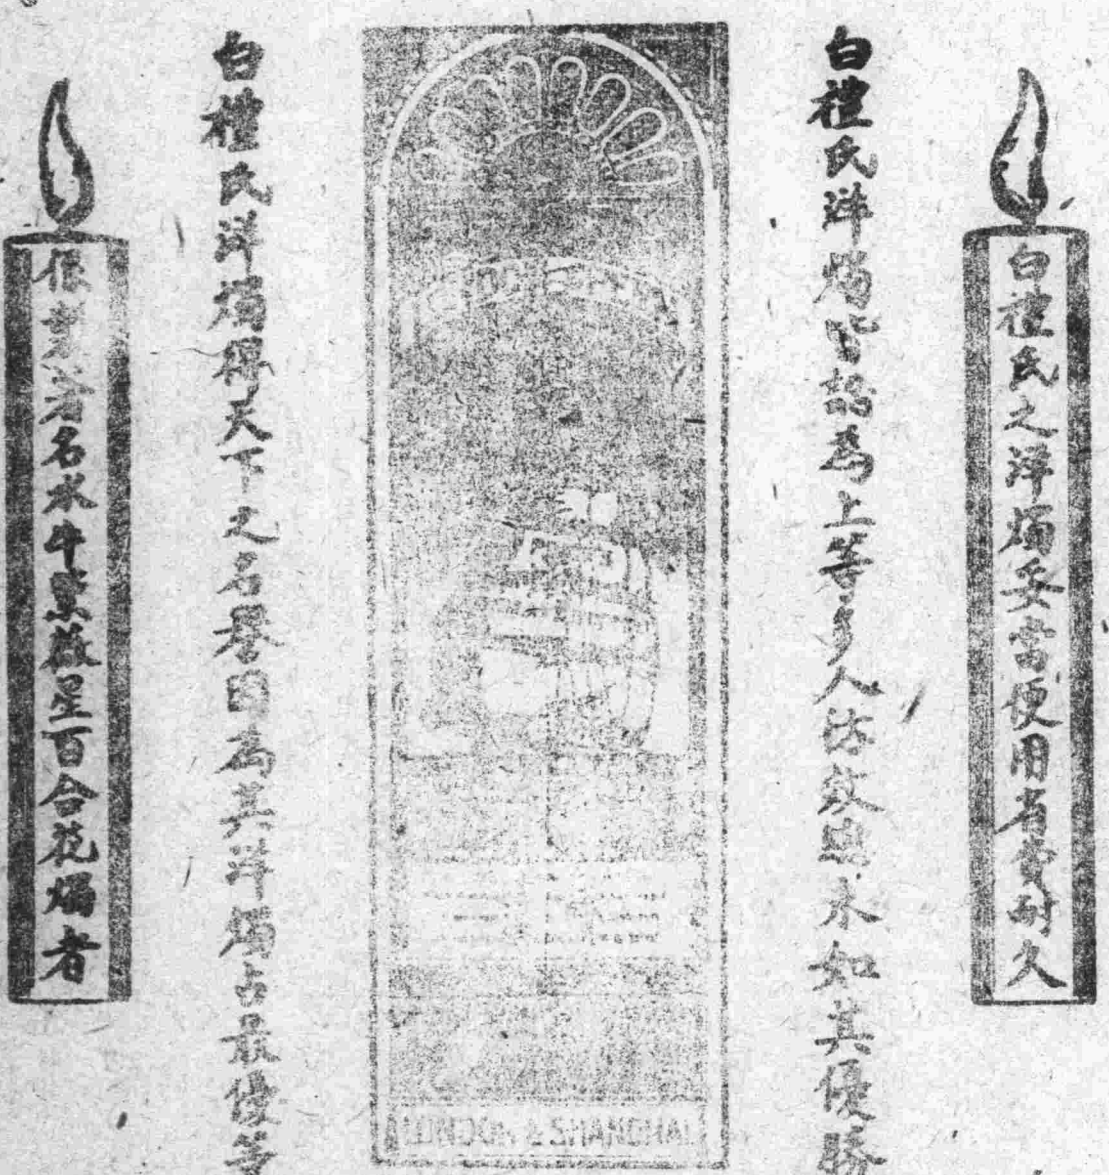 白禮氏之洋燭妥當便用省費耐久
白禮氏洋燭皆認為上等多人仿效總不如其優勝
LONDON & SHANGHAI
白禮氏洋燭得天下之名譽因為其洋燭占最優等
著名水牛紫薇星百合花燭者